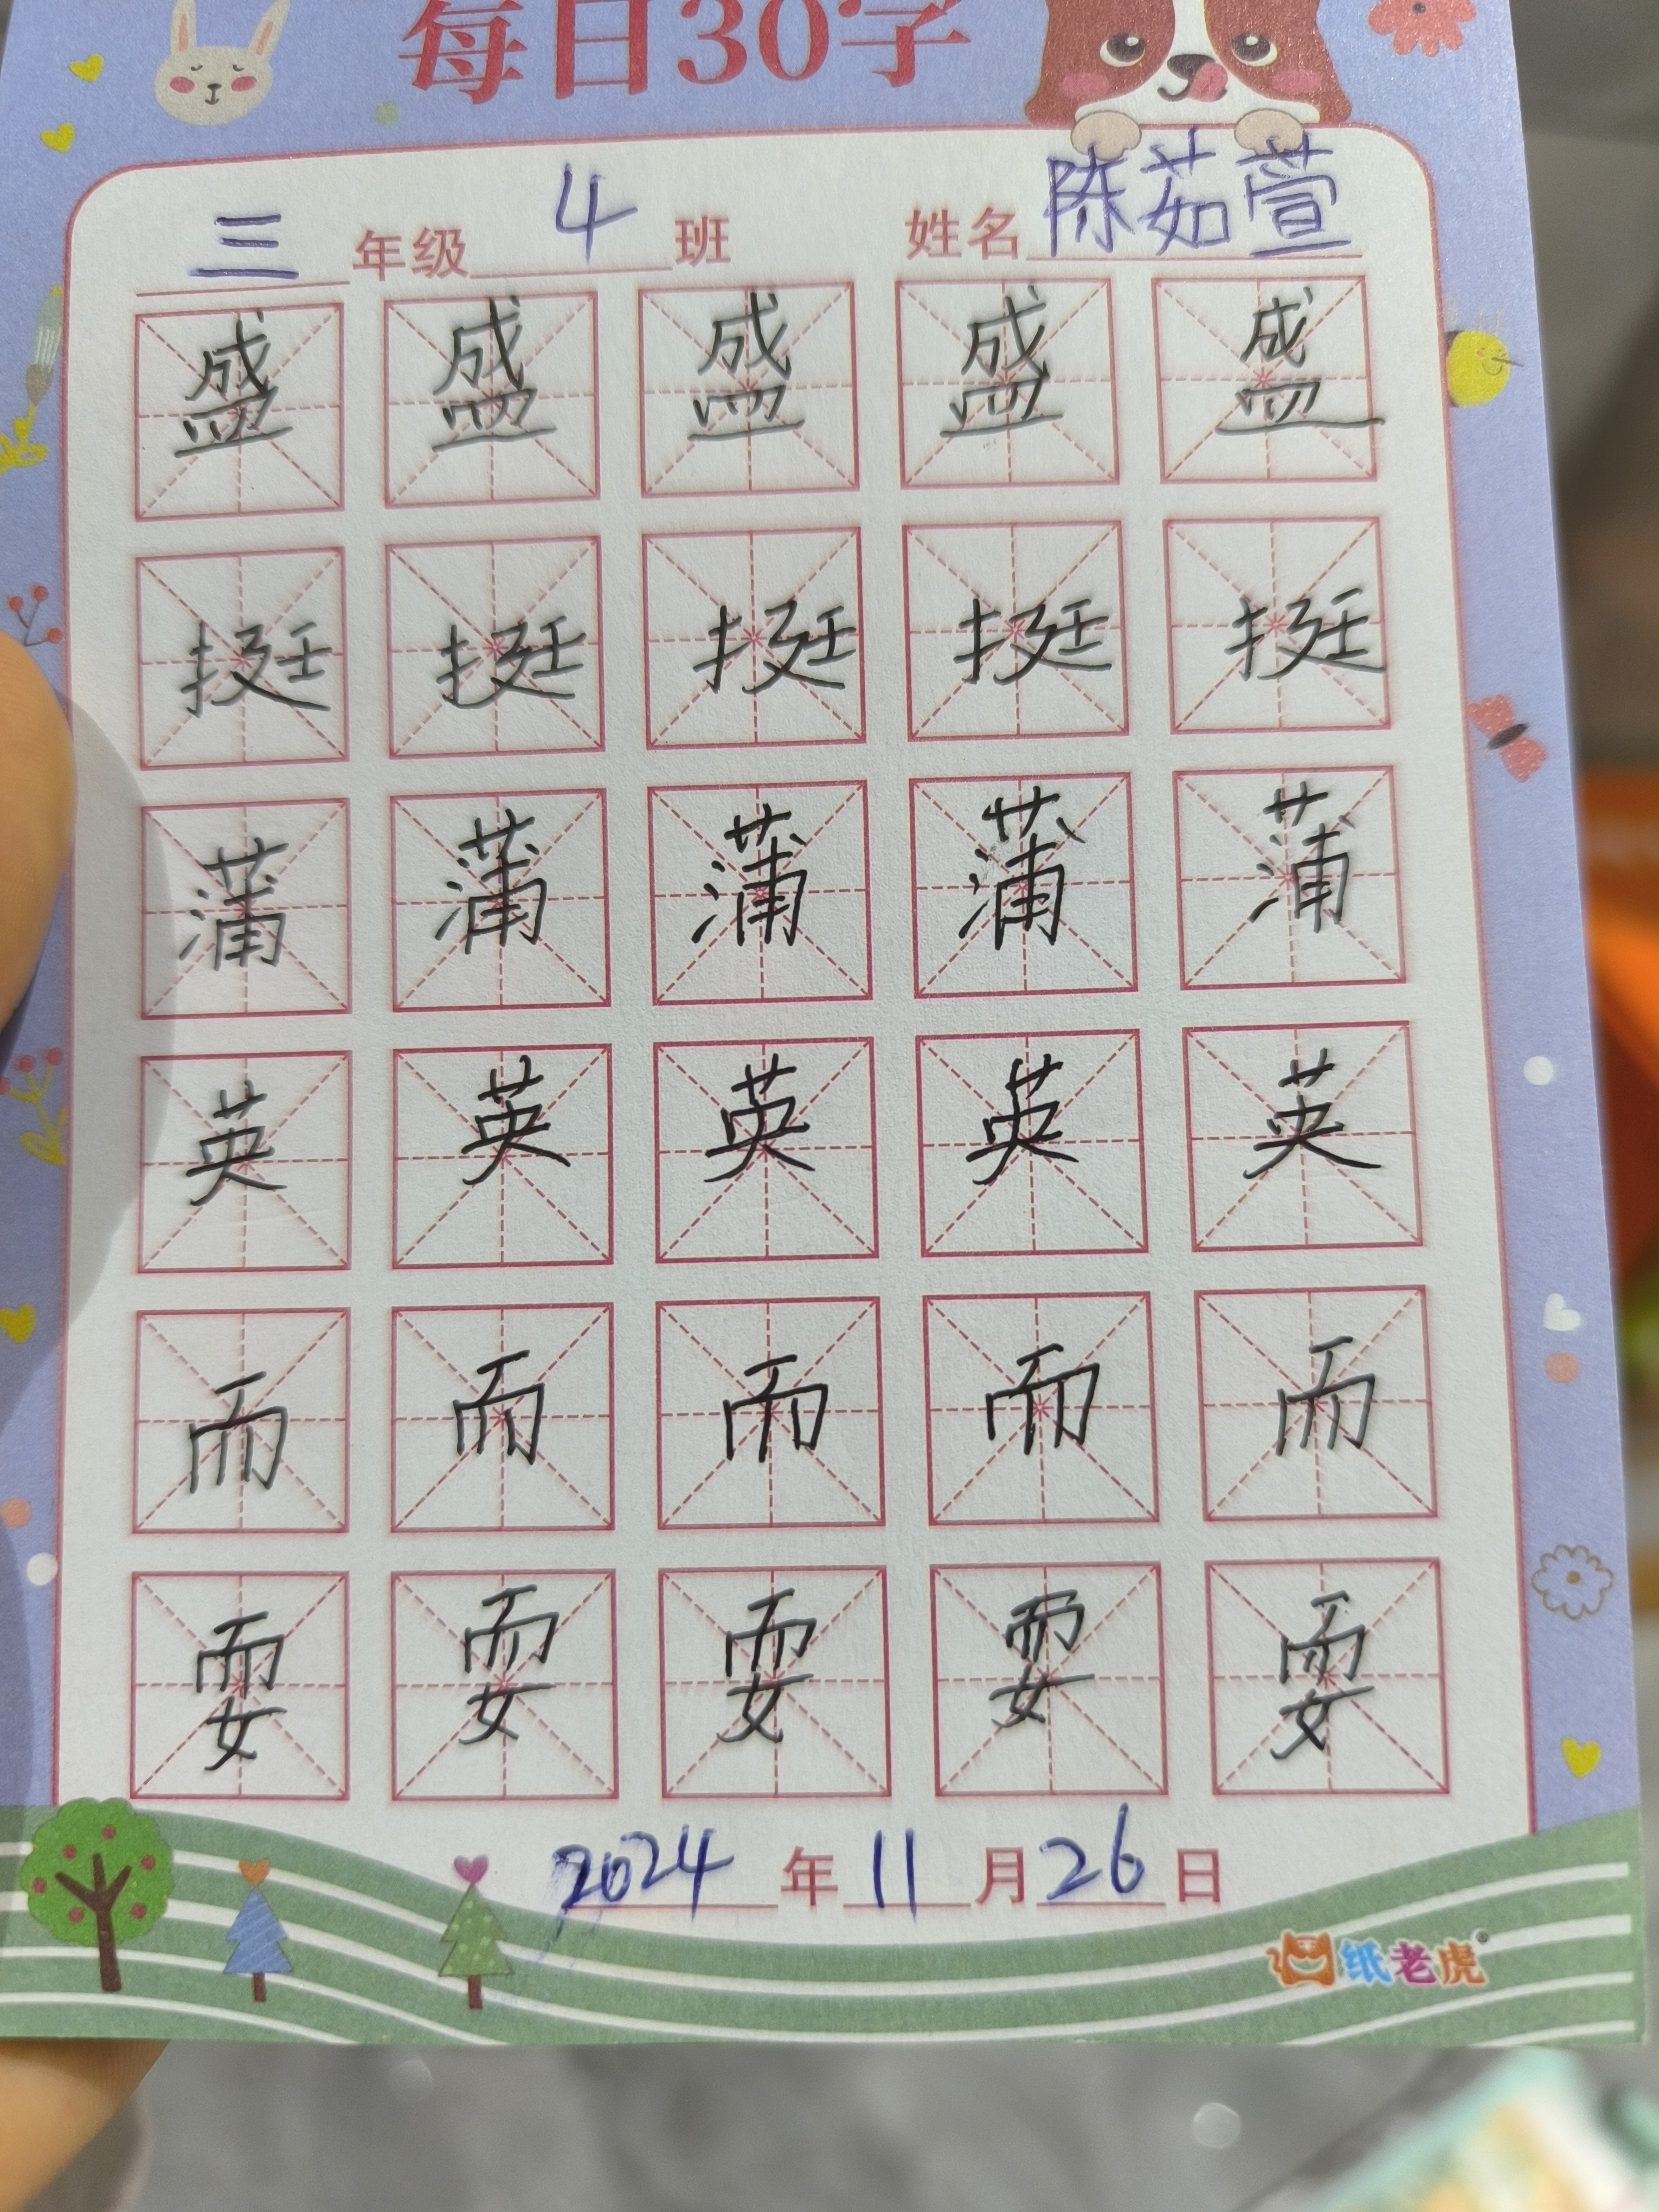 每日30字
三年级4班 姓名陈茹萱
盛盛盛盛盛
挺挺挺挺挺
蒲蒲蒲蒲蒲
英英英英英
而而而而而
耍耍耍耍耍
2024年11月26日
纸老虎®